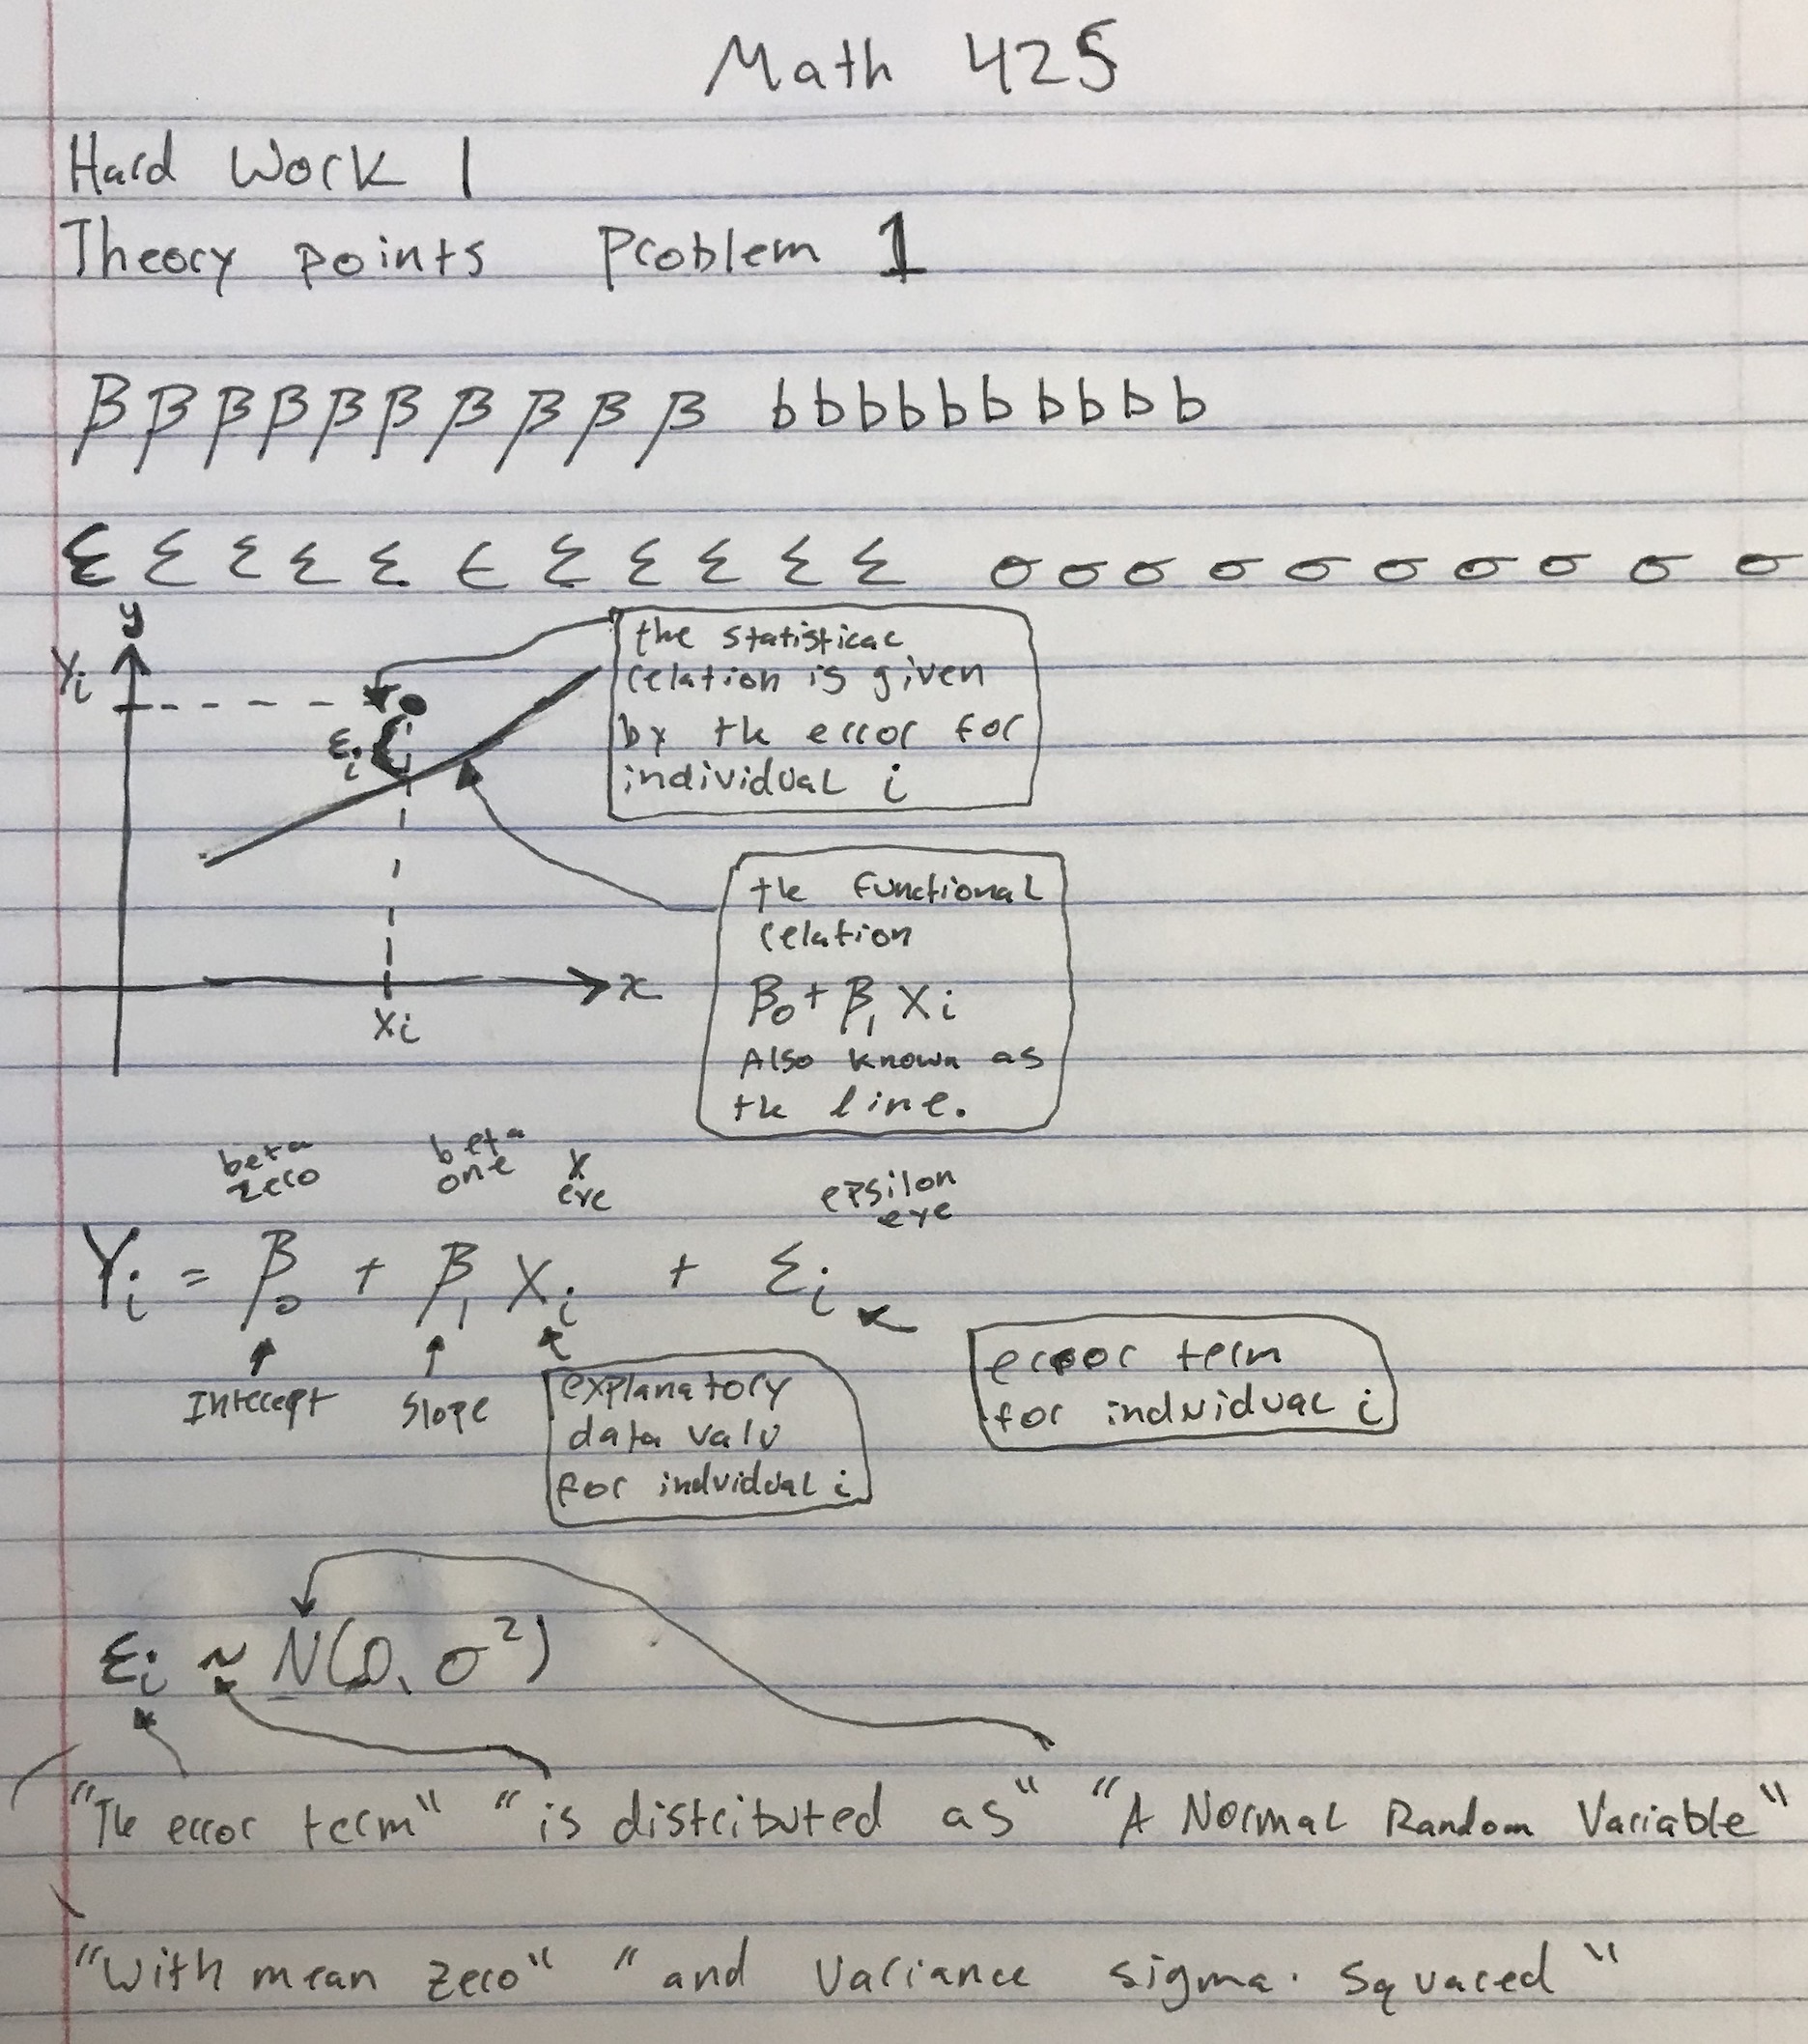 Math 425
Hard Work 1
Theory points Problem 1
β β β β β β β β β β b b b b b b b b b b
ε ε ε ε ε ε ε ε ε ε ε σ σ σ σ σ σ σ σ σ σ
y
Yi
εi
x
Xi
the statistical
relation is given
by the error for
individual i
the functional
relation
β₀ + β₁ Xi
Also known as
the line.
beta
zero
beta
one
X
eye
epsilon
eye
Yi = β₀ + β₁ Xi + εi
Intercept
Slope
explanatory
data valu
for indvidual i
error term
for individual i
εi ~ N(0, σ²)
"The error term" "is distributed as" "A Normal Random Variable"
"With mean zero" "and Variance sigma. squared"